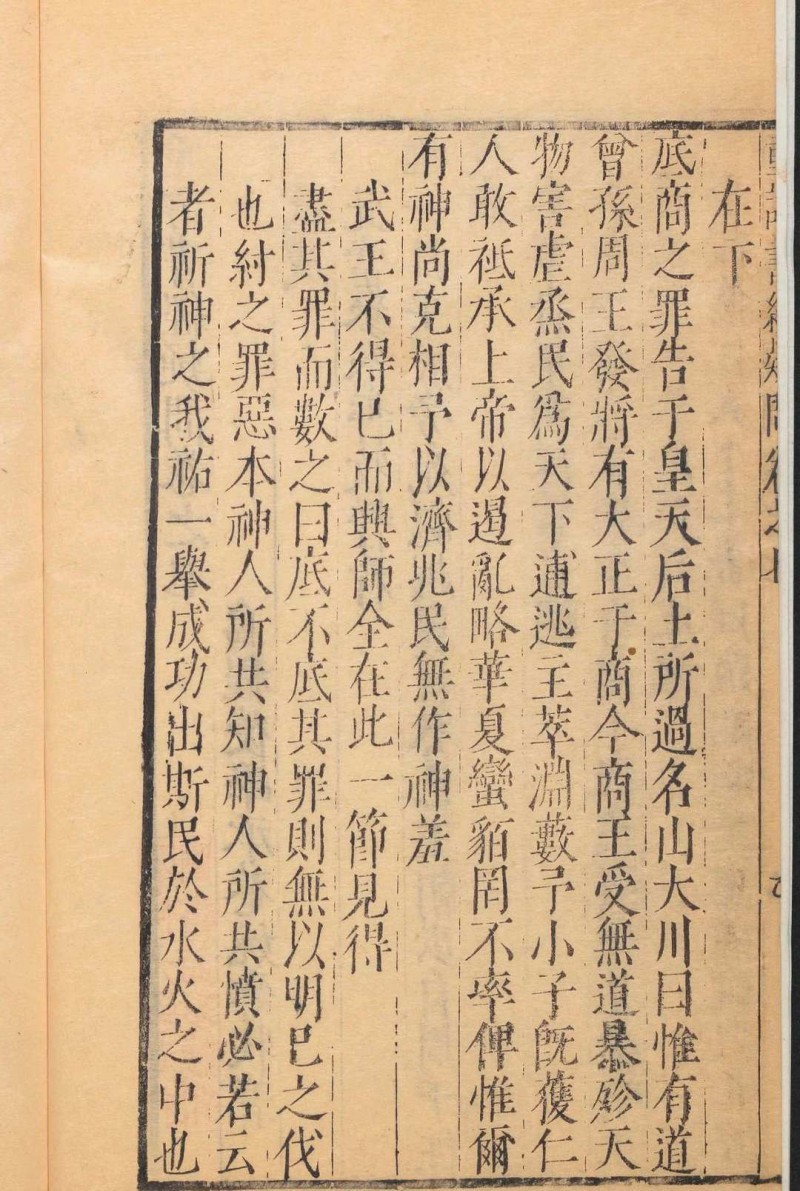 在下
底商之罪告于皇天后土所過名山大川曰惟有道
曾孫周王發將有大正于商今商王受無道暴殄天
物害虐烝民爲天下逋逃主萃淵藪予小子旣獲仁
人敢祗承上帝以遏亂略華夏蠻貊罔不率俾惟爾
有神尚克相予以濟兆民無作神羞
武王不得已而興師全在此一節見得
盡其罪而數之曰底不底其罪則無以明已之伐
也紂之罪惡本神人所共知神人所共憤必若云
者祈神之我祐一舉成功出斯民於水火之中也